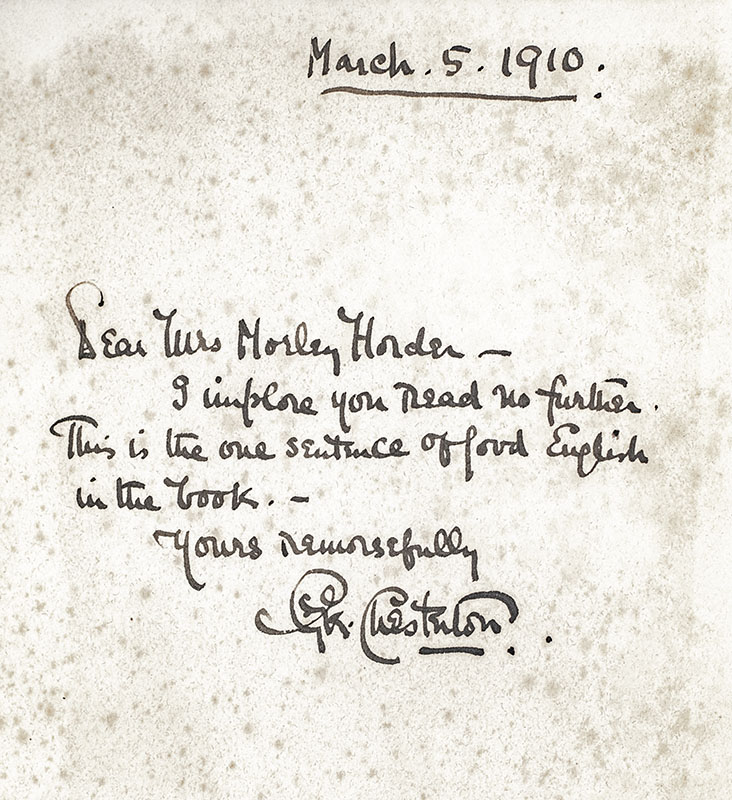 March. 5. 1910.
Dear Mrs Morley Horder —
I implore you read no further.
This is the one sentence of good English
in the book. —
Yours remorsefully
G.K. Chesterton.